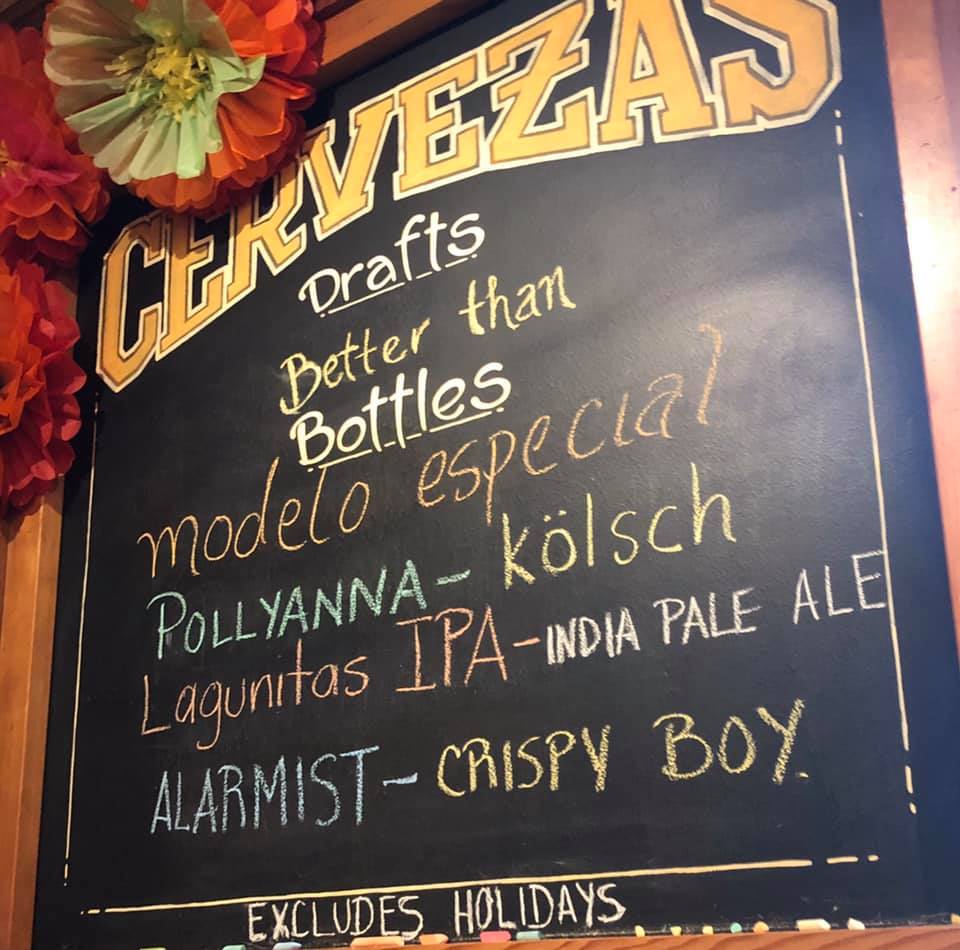 CERVEZAS
Drafts
Better than
Bottles
modelo especial
POLLYANNA - kölsch
Lagunitas IPA - INDIA PALE ALE
ALARMIST - CRISPY BOY.
EXCLUDES HOLIDAYS